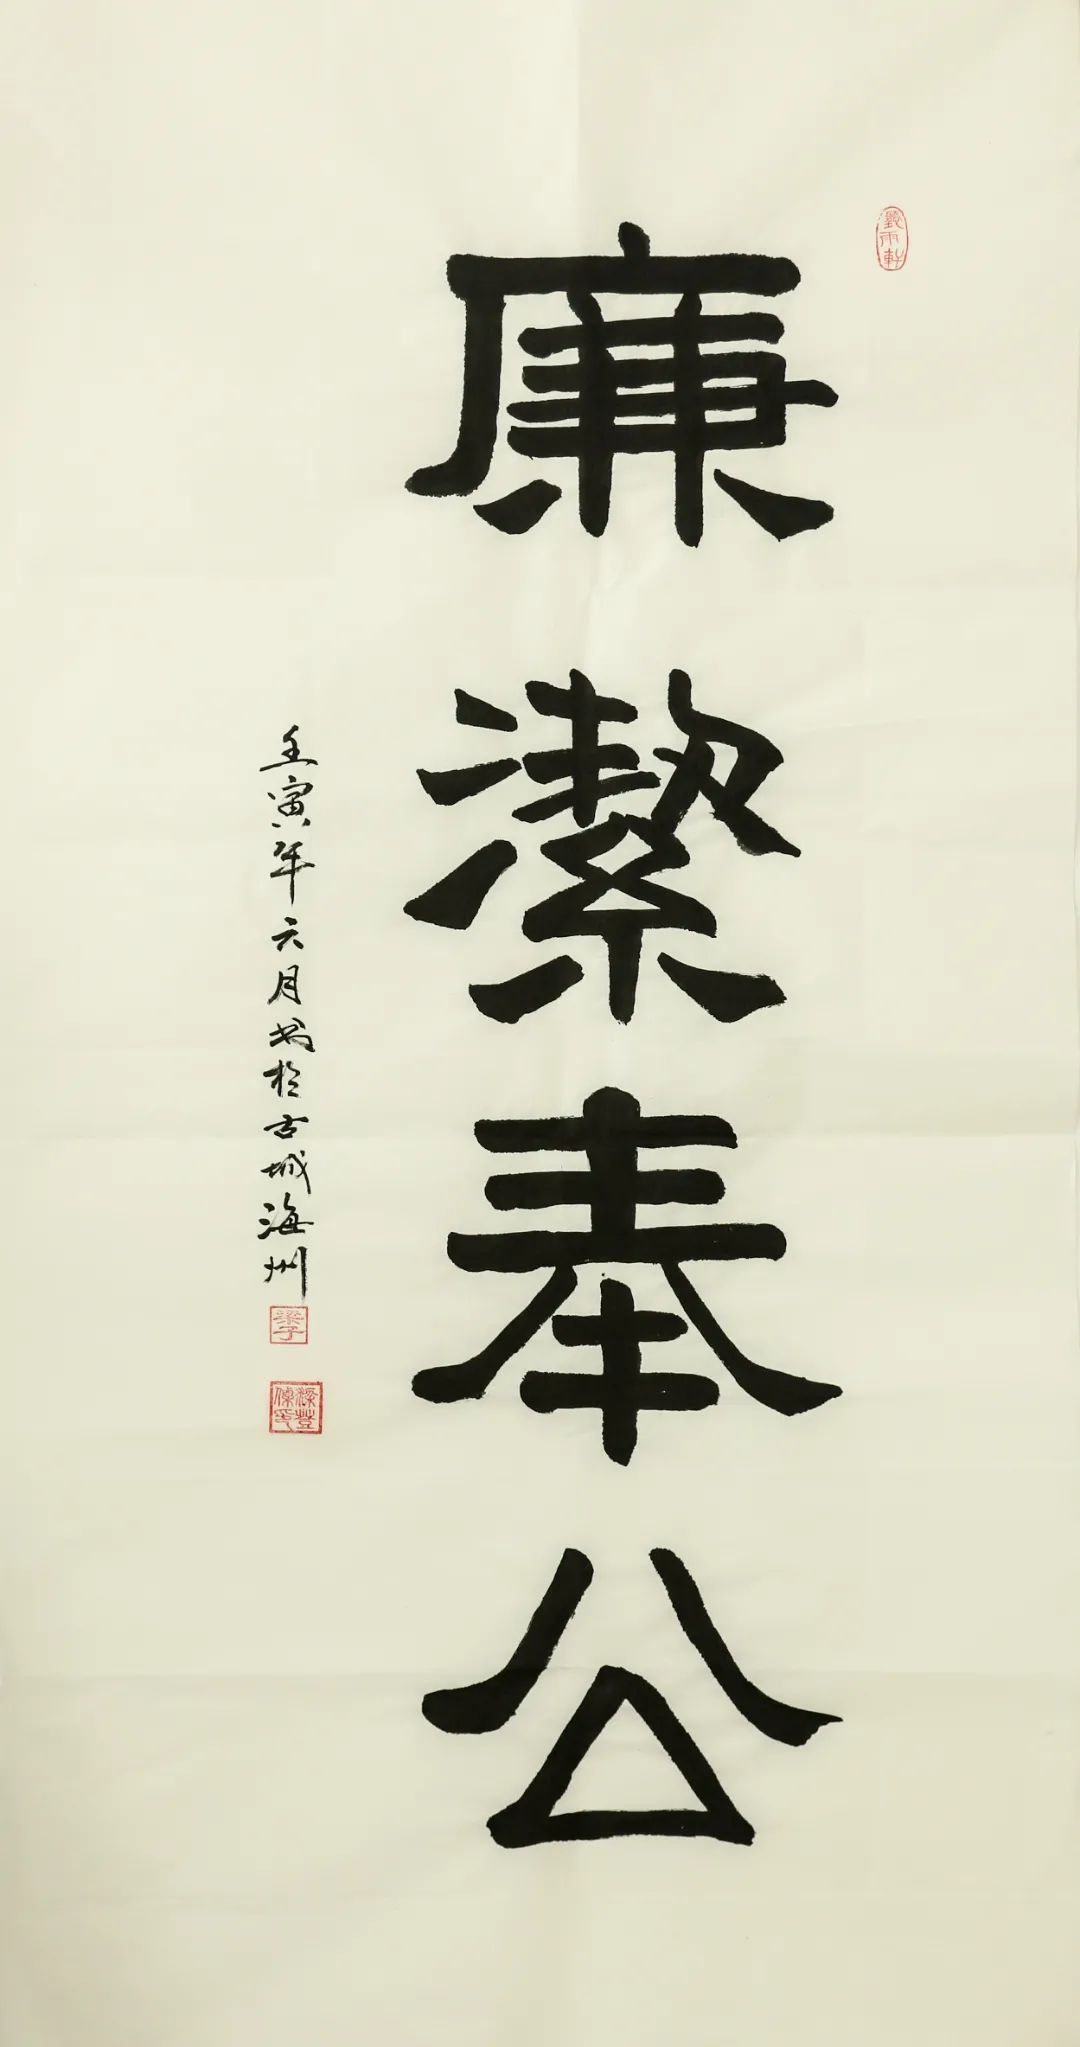 廉潔奉公
壬寅年六月书於古城海州
梁子